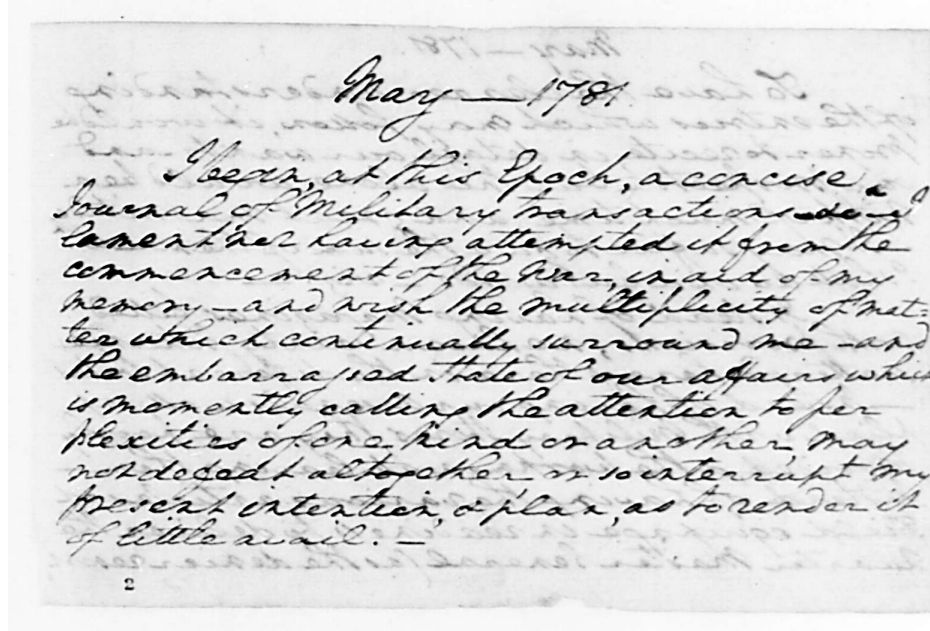 May — 1781.
I begin, at this Epoch, a concise
Journal of Military transactions &c. I
lament not having attempted it from the
commencement of the War, in aid of my
memory — and wish the multiplicity of mat=
ter which continually surround me — and
the embarrassed State of our affairs which
is momently calling the attention to per
plexities of one kind or another, may
not defeat altogether, or so interrupt my
present intention, or plan, as to render it
of little avail. —
2